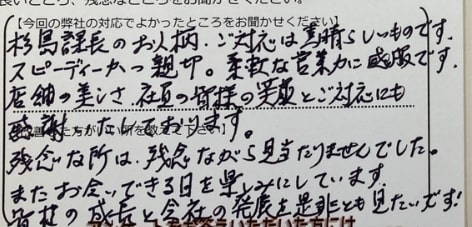 良いところ、残念なところをお聞かせください。
【今回の弊社の対応でよかったところをお聞かせください】
杉島課長のお人柄、ご対応は素晴らしいものです。
スピーディーかつ親切。柔軟な営業力に感服です。
店舗の美しさ、社員の皆様の笑顔とご対応にも
感謝いたしております。
た方がいい所を教えて下さい】
残念な所は、残念ながら見当たりませんでした。
またお会いできる日を楽しみにしています。
皆様の成長と会社の発展を是非とも見たいです!
お答えいただいた方には